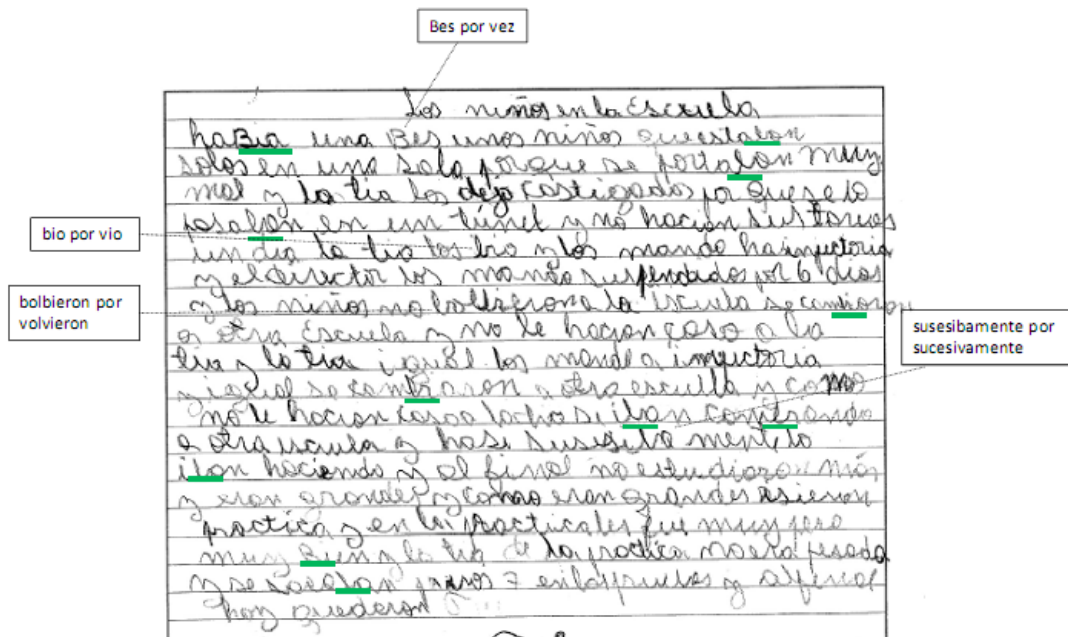 Bes por vez
Los niños en la Escuela
haBia una Bes unos niños que estabon
solos en una sala porque se portabon muy
mal y la tia los dejo castigados por que se lo
pasabon en un túnel y no hacian sus tarias
bio por vio
un dia la tia los bio y los mando ha inspectoria
y el director los mando suspendados por 6 dias
bolbieron por
volvieron
y los niños no bolbieron a la Escuela se cambioron
a otra Escuela y no le hacian caso a la
susesibamente por
sucesivamente
tia y la tia igual los mando a inspectoria
y igual se combiaron a otra escuela y como
no le hacian caso a la tia se iban combiando
a otra escuela y hasi susesiba mente lo
iban haciendo y al final no estudiaron más
y eran grandes y como eran grandes isieron
practica y en las practicas les fue muy pero
muy Bien y la tia de la practica no era pesada
y se sacaban puros 7 en las pruebas y al final
hay quedaron